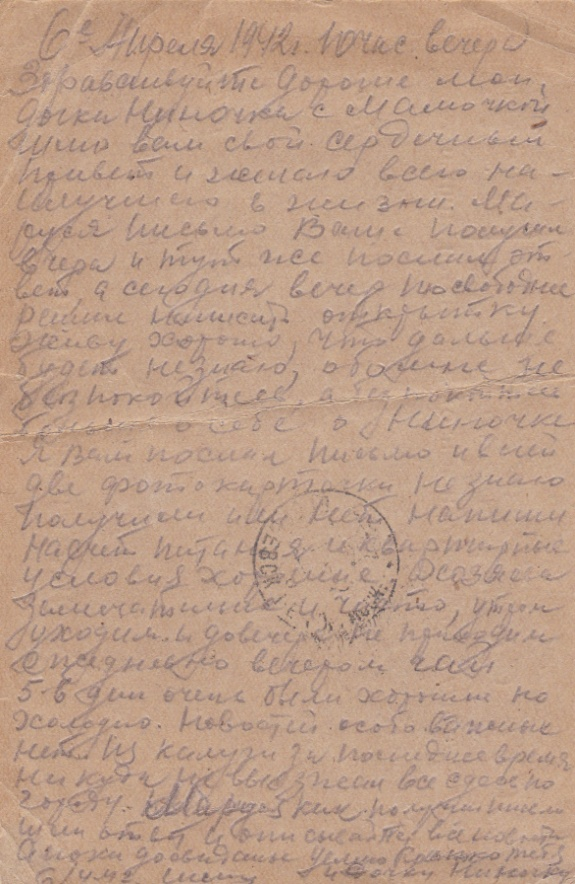 6го Апреля 1942 г. 10 час. вечера
Здравствуйте дорогие мои,
дочка Ниночка с Мамочкой
шлю вам свой сердечный
привет и желаю всего на-
илучшего в жизни. Ма-
руся письмо Ваше получил
вчера и тут же послал от-
вет, а сегодня вечер посвободнее
решил написать открытку
живу хорошо, что дальше
будет не знаю, обо мне не
безпокойтесь, а безпокойтесь
только о себе о Ниночке
я Вам послал письмо и в ней
две фото карточки не знаю
получили или нет. Напиши
Насчет питания и квартирные
условия хорошие хозяева
замечательные и чисто, утром
уходим и до вечера не приходим
ежедневно вечером чай
5 6 дни очень были хорошие но
холодно. Новостей особо важных
нет. Из Калуги за последнее время
ни куда не выезжал все сдесь по
городу. Маруся как получишь письмо
шли ответ и описывай все новости
А пока досвиданье целую крепко тебя
6/4 42 и дочку Ниночку